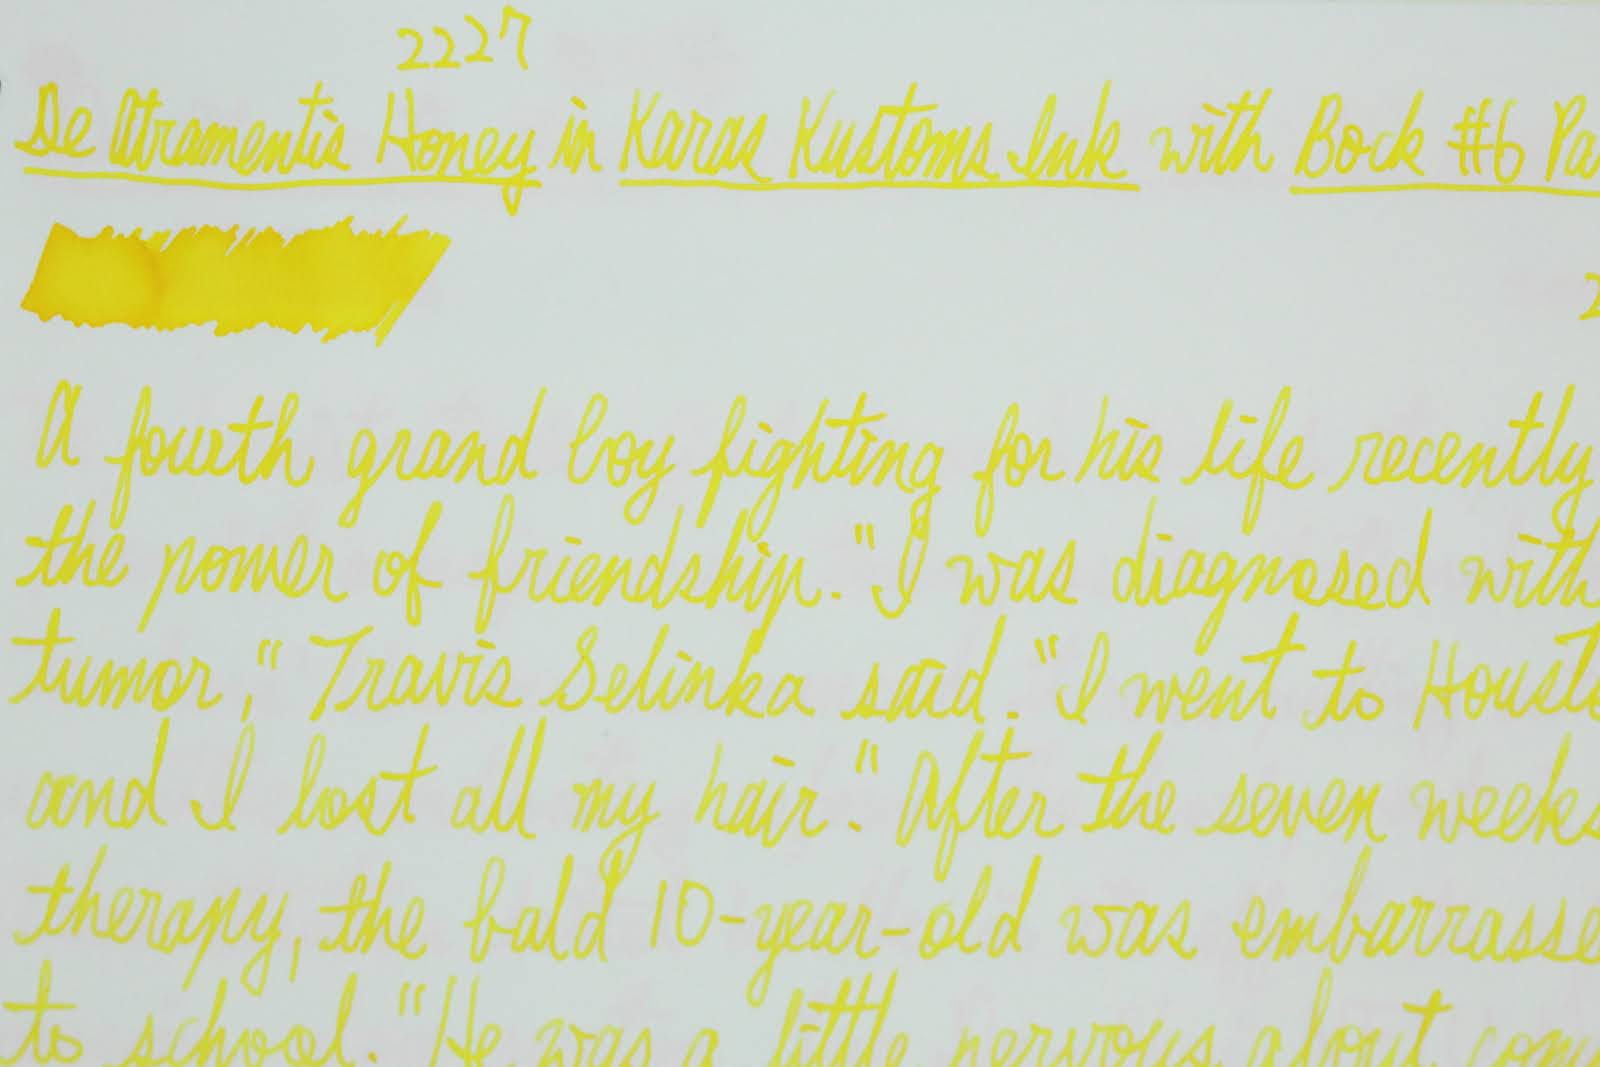 2227
De Atramentis Honey in Karas Kustoms Ink with Bock #6 Pa
2
A fourth grand boy fighting for his life recently
the power of friendship. "I was diagnosed with
tumor," Travis Selinka said. "I went to Housto
and I lost all my hair." After the seven weeks
therapy, the bald 10-year-old was embarrasse
to school. "He was a little nervous about com